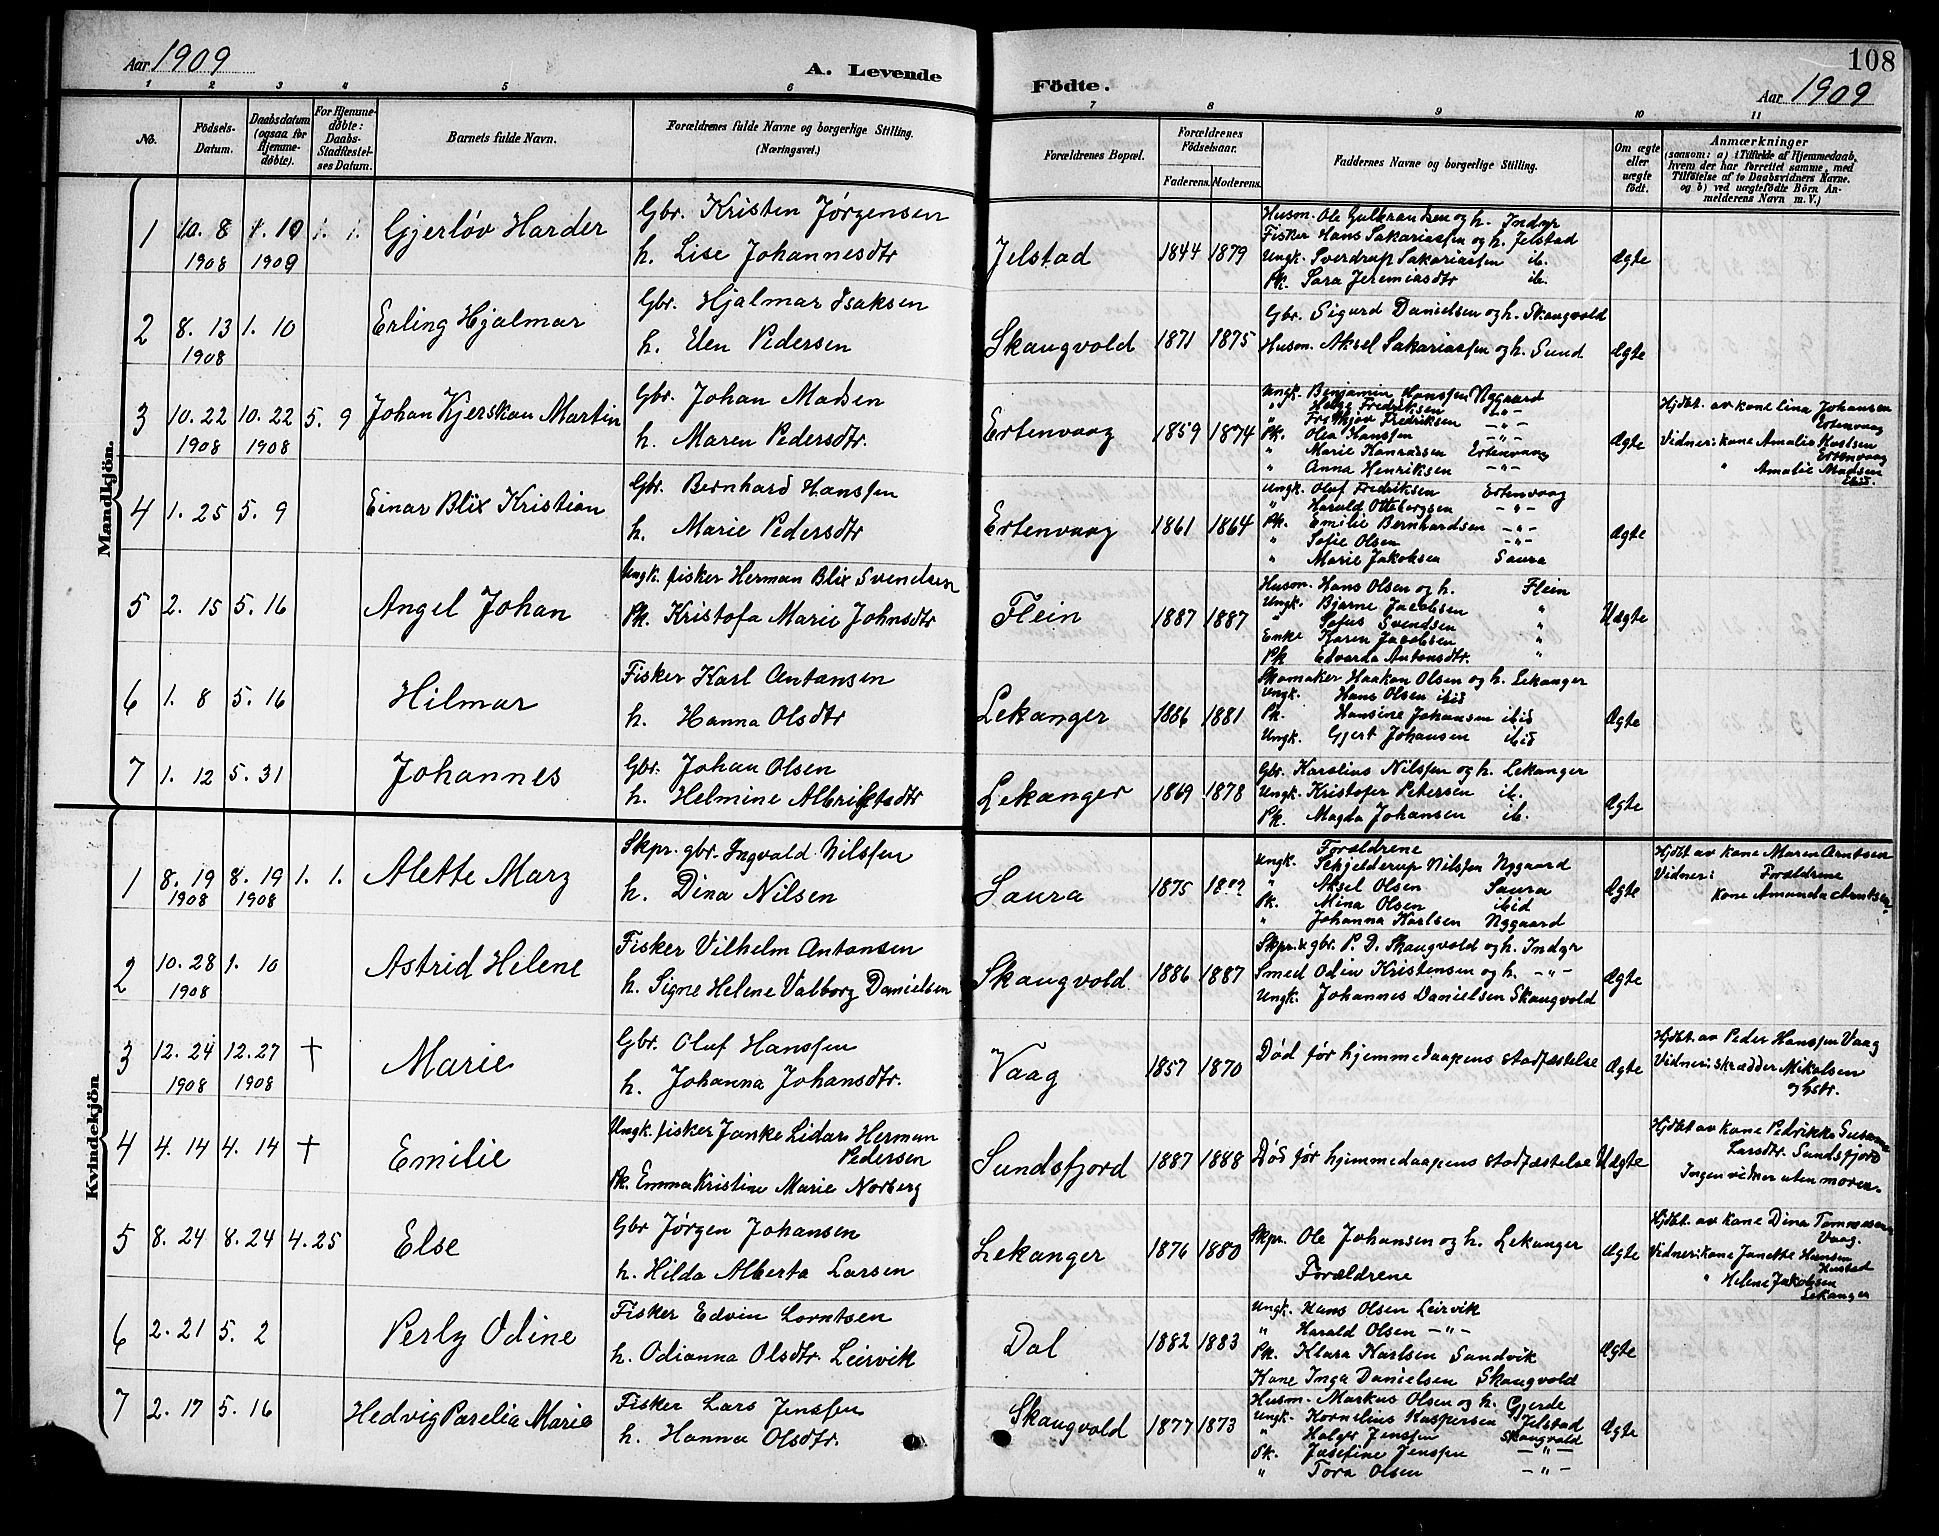 Aar 1909
A. Levende
Födte.
108
Aar 1909
1 2 3 4 5 6 7 8 9 10 11
No.
Födsels-Datum.
Daabsdatum (ogsaa for Hjemme-döbte).
For Hjemme-döbte: Daabs-Stadfæstel-ses Datum.
Barnets fulde Navn.
Forældrenes fulde Navne og borgerlige Stilling. (Næringsvei.)
Forældrenes Bopæl.
Forældrenes Födselsaar.
Faderens. Moderens.
Faddernes Navne og borgerlige Stilling.
Om ægte eller uægte födt.
Anmærkninger
(saasom: a) i Tilfælde af Hjemmedaab,
hvem der har forrettet samme, med
Tilföielse af to Daabsvidners Navne.
og b) ved uægtefödte Börn An-
melderens Navn m. V.)
Mandkjön.
1 10. 8 1908 1. 10 1909 1. 1. Gjerløv Harder
Gbr. Kristen Jørgensen
h. Lise Johannesdtr
Jelstad 1844 1879
Husm. Ole Gulbrandsen og h. Indyr
Fisker Hans Sakariassen og h. Jelstad
Ungk. Sverdrup Sakariassen ib.
Pk. Sara Jeremiasdtr ib.
Ægte
2 8. 13 1908 1. 10 Erling Hjalmar
Gbr. Hjalmar Isaksen
h. Elen Pedersen
Skaugvold 1871 1875
Gbr. Sigurd Danielsen og h. Skaugvold
Husm. Aksel Sakariassen og h. Sund
Ægte
3 10. 22 1908 10. 22 1908 5. 9 Johan Kjerskau Martin
Gbr. Johan Madsen
h. Maren Pedersdtr.
Ertenvaag 1859 1874
Ungk. Benjamin Hanssen Nygaard
" Helge Fredriksen -"-
" Fridtjov Fredriksen -"-
Pk. Olea Hanssen -"-
" Marie Konradsen Ertenvaag
" Anna Henriksen -"-
Ægte
Hjdbt. av kone Lina Johansen
Ertenvaag
Vidner: kone Amalie
Ertenvaag
" Amalie Madsen
ibid.
4 1. 25 5. 9 Einar Blix Kristian
Gbr. Bernhard Hanssen
h. Marie Pedersdtr
Ertenvaag 1861 1864
Ungk. Oluf Fredriksen Ertenvaag
" Harald Ottebergsen -"-
Pk. Emilie Bernhardsen -"-
" Sofie Olsen -"-
" Marie Jakobsen Saura
Ægte
5 2. 15 5. 16 Angel Johan
Ungk. fisker Herman Blix Svendsen
Pk. Kristofa Marie Johnsdtr
Flein 1887 1887
Husm. Hans Olsen og h. Flein
Ungk. Bjarne Jacobsen "
" Sofus Svendsen "
Enke Karen Jacobsen "
Pk Edvarda Antonsdtr. "
Uægte
6 1. 8 5. 16 Hilmar
Fisker Karl Antonsen
h. Hanna Olsdtr
Lekanger 1886 1881
Skomaker Haakon Olsen og h. Lekanger
Ungk. Hans Olsen ibid
Pk. Hansine Johansen ibid
Ungk. Gjert Johansen ibid
Ægte
7 1. 12 5. 31 Johannes
Gbr. Johan Olsen
h. Helmine Albrigtsdtr
Lekanger 1869 1878
Gbr. Karelius Nilssen og h. Lekanger
Ungk. Kristofer Petersen ib.
Pk. Magda Johansen ib.
Ægte
Kvindekjön
1 8. 19 1908 8. 19 1908 1. 1. Alette Mary
Skpr. gbr. Ingvald Nilssen
h. Dina Nilsen
Saura 1875 18??
Forældrene
Ungk. Schjelderup Nilssen Nygaard
" Aksel Olsen Saura
Pk. Mina Olsen ibid
" Johanna Karlsen Nygaard
Ægte
Hjdbt av kone Maren Arntsen
Vidner: Forældrene
kone Amanda Arntsen
2 10. 28 1908 1. 10 Astrid Helene
Fisker Vilhelm Antonsen
h. Signe Helene Valborg Danielsen
Skaugvold 1886 1887
Skpr. & gbr. P. D. Skaugvold og h. Indyr
Smed Odin Kristensen og h. -"-
Ungk. Johannes Danielsen Skaugvold
Ægte
3 12. 24 1908 12. 27 1908 † Marie
Gbr. Oluf Hanssen
h. Johanna Johansdtr.
Vaag 1857 1870
Død før hjemmedaapens stadfæstelse
Ægte
Hjdbt. av Peder Hanssen Vaag
Vidner: skrædder Mikalsen
og hstr.
4 4. 14 4. 14 † Emilie
Ungk. fisker Janke Lidar Herman
Pedersen
Pk. Emma Kristine Marie Norberg
Sundsfjord 1887 1888
Død før hjemmedaapens stadfæstelse
Uægte
Hjdbt av kone Pedrikke Susanna
Larsdtr. Sundsfjord
Ingen vidner uten moren.
5 8. 24 8. 24 4. 25 Else
Gbr Jørgen Johansen
h. Hilda Alberta Larsen
Lekanger 1876 1880
Skpr. Ole Johansen og h. Lekanger
Forældrene
Ægte
Hjdbt. av kone Dina Tommesen
Vaag.
Vidner: kone Janette Hansen
Hustad
" Helene Jakobsen
Lekanger
6 2. 21 5. 2 Perly Odine
Fisker Edvin Lorntsen
h. Odianna Olsdtr. Leirvik
Dal 1882 1883
Ungk. Hans Olsen Leirvik
" Harald Olsen -"-
Pk. Klara Karlsen Sandvik
Kone Inga Danielsen Skaugvold
Ægte
7 2. 17 5. 16 Hedvig Parelia Marie
Fisker Lars Jenssen
h. Hanna Olsdtr.
Skaugvold 1877 1873
Husm. Markus Olsen og h. Gjerde
Ungk. Kornelius Kaspersen Jelstad
" Holger Jenssen Skaugvold
Pk. Josefine Jenssen -"-
" Tora Olsen -"-
Ægte